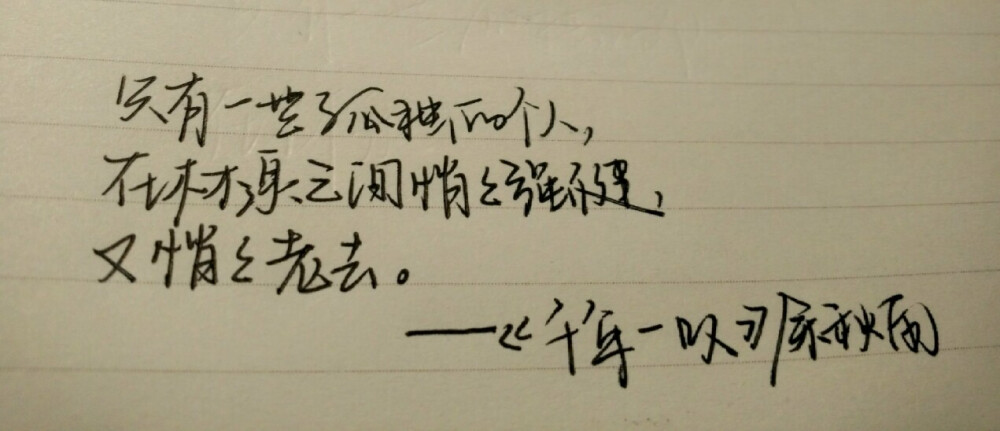 只有一些孤独的个人，
在林泉之间悄悄强健，
又悄悄老去。
——《千年一叹》余秋雨